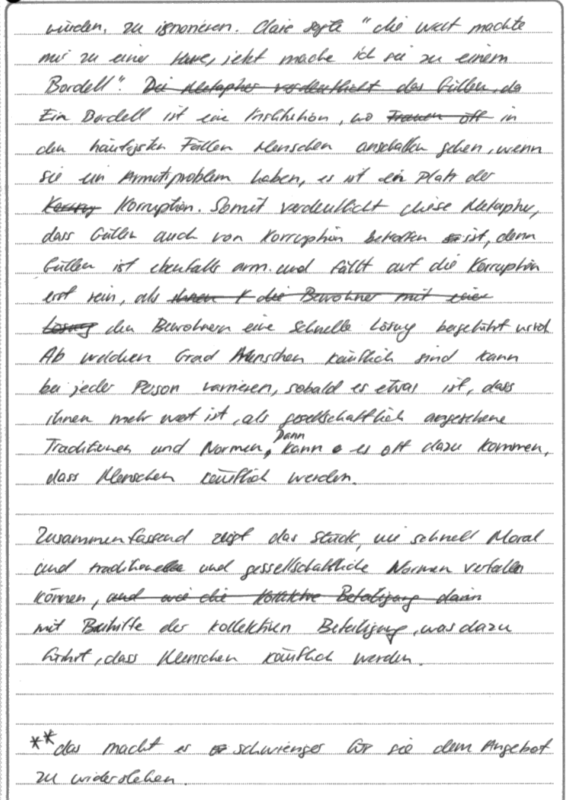 würden, zu ignorieren. Claire sagte "die Welt machte
mir zu einer Hure, jetzt mache ich sie zu einem
Bordell". Die Metapher verdeutlicht das Güllen, da
Ein Bordell ist eine Institution, wo Frauen oft in
den häufigsten Fällen Menschen anschaffen gehen, wenn
sie ein Armutsproblem haben, es ist ein Platz der
Korrup Korruption. Somit verdeutlicht diese Metapher,
dass Güllen auch von Korruption betroffen ist, denn
Güllen ist ebenfalls arm. und fällt auf die Korruption
erst rein, als die Bewohner mit einer
Lösung den Bewohnern eine schnelle Lösug wird
Ab welchen Grad Menschen käuflich sind kann
bei jeder Person varrieren, sobald es etwas ist, dass
ihnen mehr wert ist, als gesellschaftlich angesehene
Traditionen und Normen, Dann kann es oft dazu kommen,
dass Menschen käuflich werden.
Zusammenfassend zeigt das Stück, wie schnell Moral
und traditionelle und gessellschaftliche Normen verfallen
können, und wie die kollektive Beteiligung darin
mit Beihilfe der kollektiven Beteiligung, was dazu
führt, dass Menschen käuflich werden.
**das macht es schwieriger für sie dem Angebot
zu widerstehen.